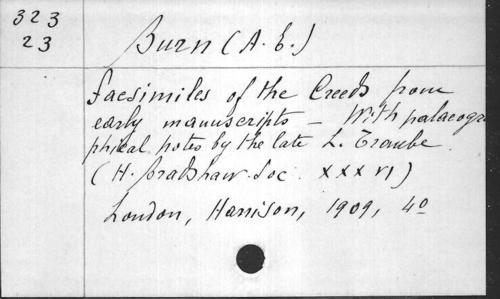 323
23
Burn (A. E.)
Facsimiles of the Creeds from
early manuscripts - With palaeogra
phical notes by the late L. Traube
(H. Bradshaw Soc. XXXVI)
London, Harrison, 1909, 4o